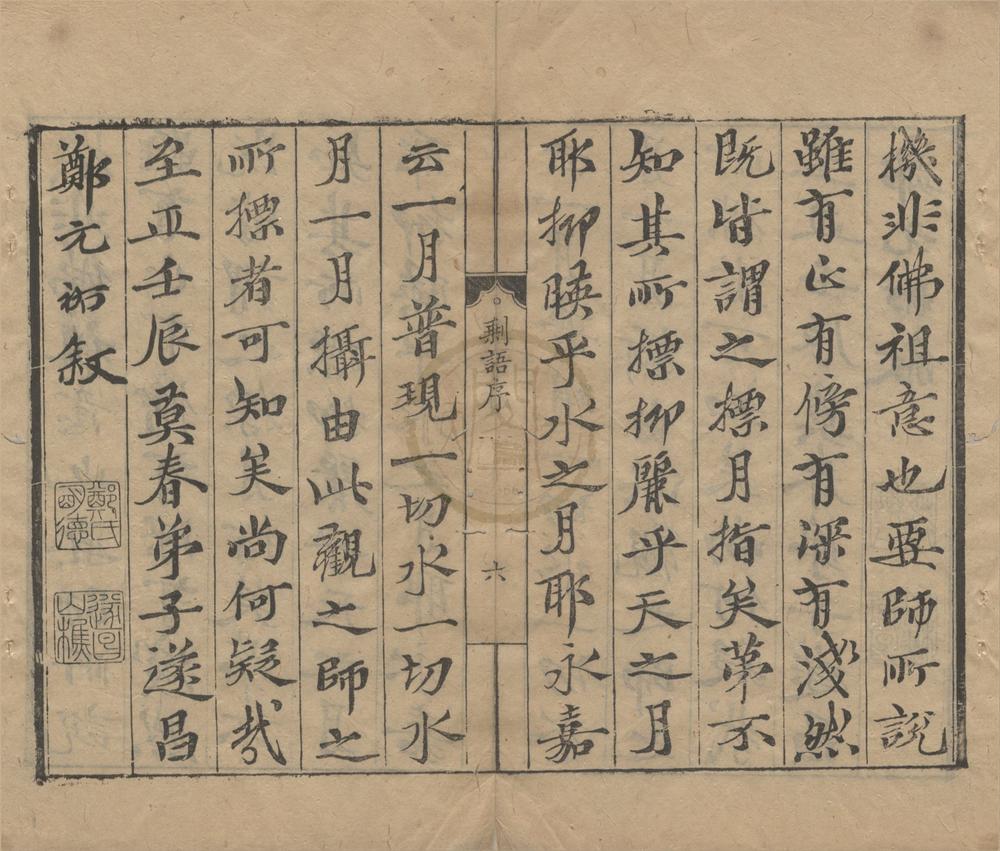 機非佛祖意也要師所說
雖有正有傍有深有淺然
既皆謂之標月指矣第不
知其所標抑麗乎天之月
耶抑暎乎水之月耶永嘉
剩語序
六
云一月普現一切水一切水
月一月攝由此觀之師之
所標者可知矣尚何疑哉
至正壬辰莫春弟子遂昌
鄭元祐敘
鄭氏明德
遂昌山樵